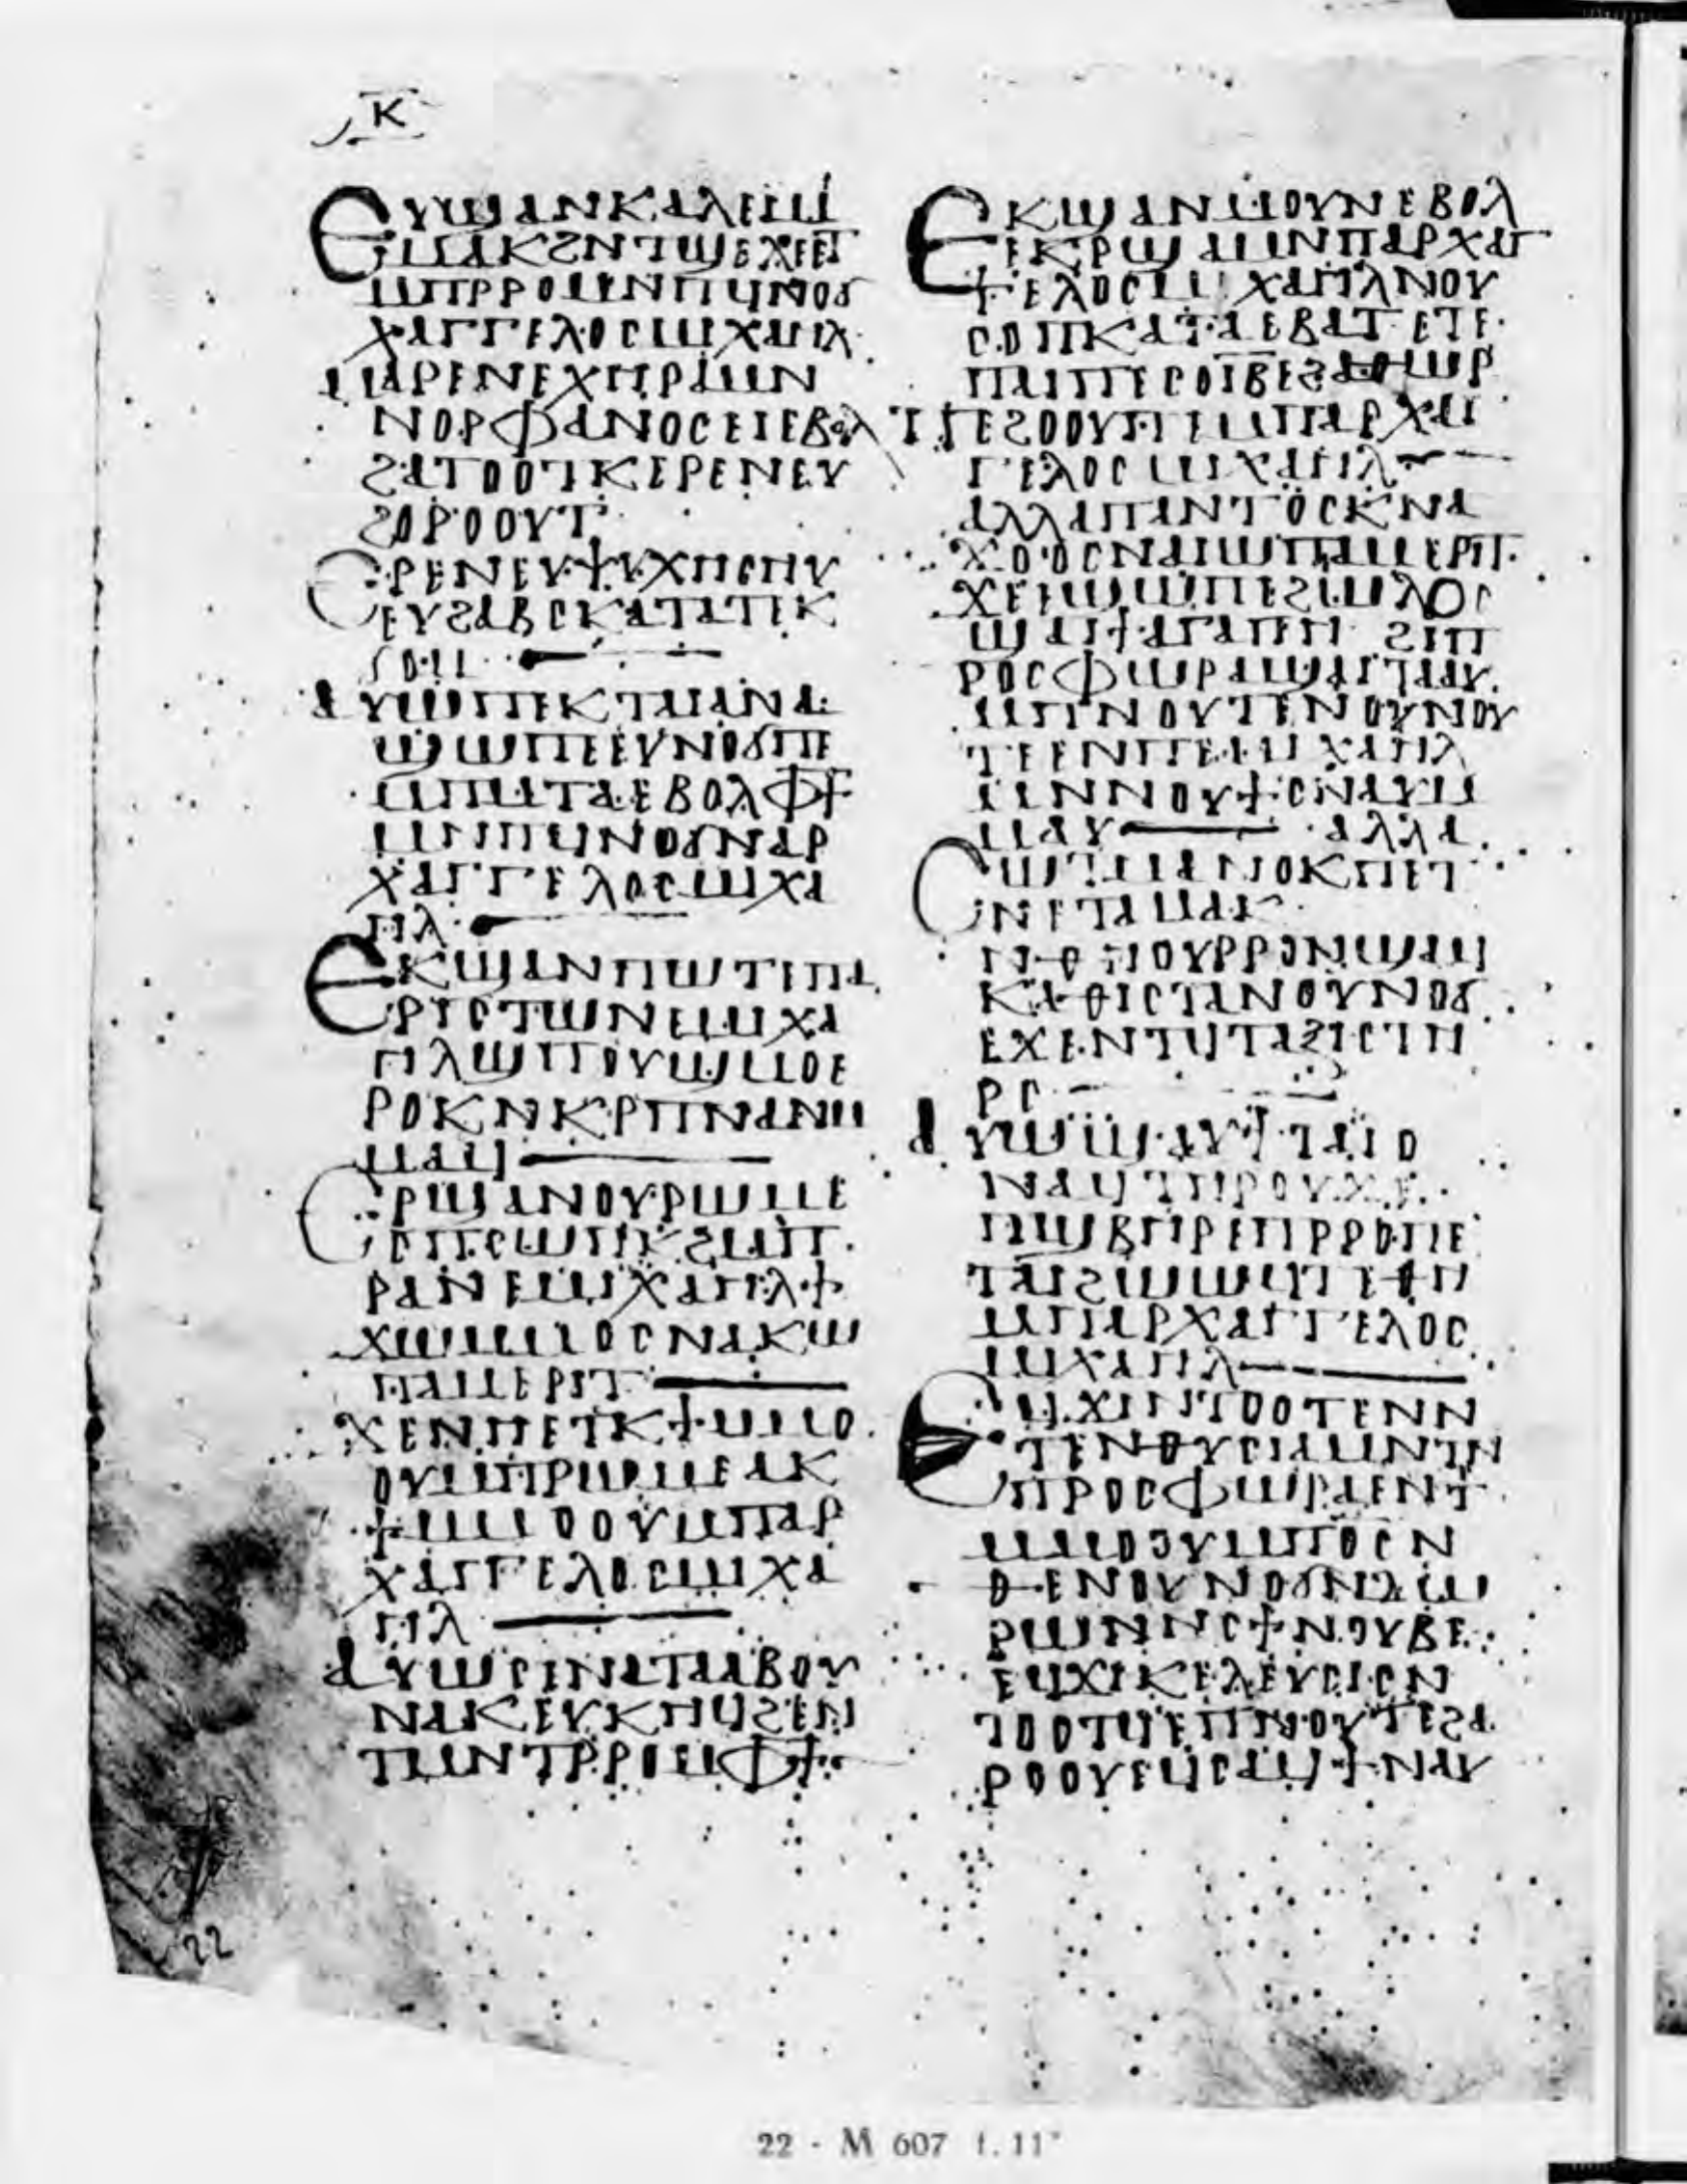 Ⲕ
ⲈⲨϢⲀⲚⲔⲀⲖⲈⲒⲘ
ⲘⲘⲀⲔϨⲚⲦϢⲈⲖⲈⲈⲦ
ⲘⲠⲢⲢⲞⲘⲚⲠϤⲚⲞϬ
ⲬⲀⲄⲄⲈⲖⲞⲤⲘⲒⲬⲀⲎⲖ
ⲘⲀⲢⲈⲚⲈⲬⲎⲢⲀⲘⲚ
ⲚⲞⲢⲪⲀⲚⲞⲤⲈⲒⲈⲂⲞⲖ
ϨⲀⲦⲞⲞⲦⲔⲈⲢⲈⲚⲈⲨ
ϨⲞⲢⲞⲞⲨⲦ
ⲈⲢⲈⲚⲈⲨⲮⲨⲬⲎⲤⲎⲨ
ⲈⲨϨⲀⲂⲤⲔⲀⲦⲀⲦⲈⲔ
ϬⲞⲘ
ⲀⲨⲰⲠⲈⲔⲦⲀⲒⲀⲚⲀ
ϢⲰⲠⲈⲈⲨⲚⲞϬⲠⲈ
ⲘⲠⲘⲦⲀⲈⲂⲞⲖⲪϮ
ⲘⲚⲠϤⲚⲞϬⲚⲀⲢ
ⲬⲀⲄⲄⲈⲖⲞⲤⲘⲒⲬⲀ
ⲎⲖ
ⲈⲔϢⲀⲚⲠⲰⲦⲒⲠⲀ
ⲢⲒⲤⲦⲰⲚⲈⲘⲒⲬⲀ
ⲎⲖϢⲠⲞⲨϢⲘⲞⲈ
ⲢⲞⲔⲚⲔⲢⲠⲚⲀⲚⲘ
ⲘⲀϤ
ⲈⲢϢⲀⲚⲞⲨⲢⲰⲘⲈ
ⲤⲠⲤⲰⲠⲔϨⲘⲠ
ⲢⲀⲚⲈⲘⲒⲬⲀⲎⲖϮ
ϪⲰⲘⲘⲞⲤⲚⲀⲔⲰ
ⲠⲀⲘⲈⲢⲒⲦ
ϪⲈⲚⲠⲈⲦⲔϮⲘⲘⲞ
ⲞⲨⲘⲠⲢⲰⲘⲈⲀⲔ
ϮⲘⲘⲞⲞⲨⲘⲠⲀⲢ
ⲬⲀⲄⲄⲈⲖⲞⲤⲘⲒⲬⲀ
ⲎⲖ
ⲀⲨⲰⲤⲈⲚⲀⲦⲀⲀⲂⲞⲨ
ⲚⲀⲔⲈⲨⲔⲎϤϨⲈⲚ
ⲦⲘⲚⲦⲢⲢⲞⲘⲪϮ
ⲈⲔϢⲀⲚⲘⲞⲨⲚⲈⲂⲞⲖ
ⲈⲔⲢϢⲀⲘⲚⲠⲀⲢⲬⲀⲄ
ⲄⲈⲖⲞⲤⲘⲒⲬⲀⲎⲖⲚⲞⲨ
ⲤⲞⲠⲔⲀⲦⲀⲈⲂⲀⲦⲈⲦⲈ
ⲠⲀⲒⲠⲈⲤⲞⲨⲒⲂⲈϨⲀⲐⲰⲢ
ⲠⲈϨⲞⲞⲨⲠⲈⲘⲠⲀⲢⲬⲀⲄ
ⲄⲈⲖⲞⲤⲘⲒⲬⲀⲎⲖ
ⲀⲖⲖⲀⲠⲀⲚⲦⲞⲤⲔⲚⲀ
ϪⲞⲞⲤⲚⲀⲒⲰⲠⲀⲘⲈⲢⲒⲦ
ϪⲈⲒⲰⲰⲠⲈϨⲘⲖⲞⲤ
ϢⲀϤϮⲀⲄⲀⲠⲎ ϨⲒⲠ
ⲢⲞⲤⲪⲰⲢⲀϢⲀⲒⲦⲀⲀⲨ
ⲘⲠⲚⲞⲨⲦⲈⲚⲞⲨⲚⲞⲨ
ⲦⲈⲈⲚⲠⲈⲘⲒⲬⲀⲎⲖ
ⲘⲚⲚⲞⲨϮⲤⲚⲀⲨⲘ
ⲘⲀⲨ ⲀⲖⲖⲀ
ⲤⲰⲦⲘⲀⲚⲞⲔⲠⲈⲦ
ⲚⲈⲦⲀⲘⲀⲔ
ⲚⲐⲎⲞⲨⲢⲢⲞⲚϢⲀϤ
ⲔⲀⲐⲒⲤⲦⲀⲚⲞⲨⲚⲞϬ
ⲈϪⲈⲚⲦϤⲦⲀⲜⲒⲤⲦⲎ
ⲢⲤ
ⲀⲨⲰϢⲀⲨϮⲦⲀⲒⲞ
ⲚⲀϤⲦⲎⲢⲞⲨϪⲈ
ⲠϢⲂⲎⲢⲈⲠⲢⲢⲞⲠⲈ
ⲦⲀⲒϨⲰⲰϤⲦⲈⲐⲎ
ⲘⲠⲀⲢⲬⲀⲄⲄⲈⲖⲞⲤ
ⲘⲒⲬⲀⲎⲖ
ⲈϤϪⲒⲚⲦⲞⲞⲦⲈⲚⲚ
ⲦⲈⲚⲐⲨⲤⲒⲀⲘⲚⲦⲚ
ⲠⲢⲞⲤⲪⲰⲢⲀⲈⲚϮ
ⲘⲘⲞⲞⲨⲘⲠⲞⲤⲚ
ⲐⲈⲚⲞⲨⲚⲞϬⲚⲖⲀⲘ
ⲢⲰⲚⲚⲤϮⲚⲞⲨⲂⲈ
ⲈϤϪⲒⲔⲈⲖⲈⲨⲤⲒⲤⲚ
ⲦⲞⲞⲦϤⲈⲠⲚⲞⲨⲦⲈϨⲀ
ⲢⲞⲞⲨⲈϤⲤⲀϤϮⲚⲀⲨ
22
22 - M 607 f. 11ᵛ